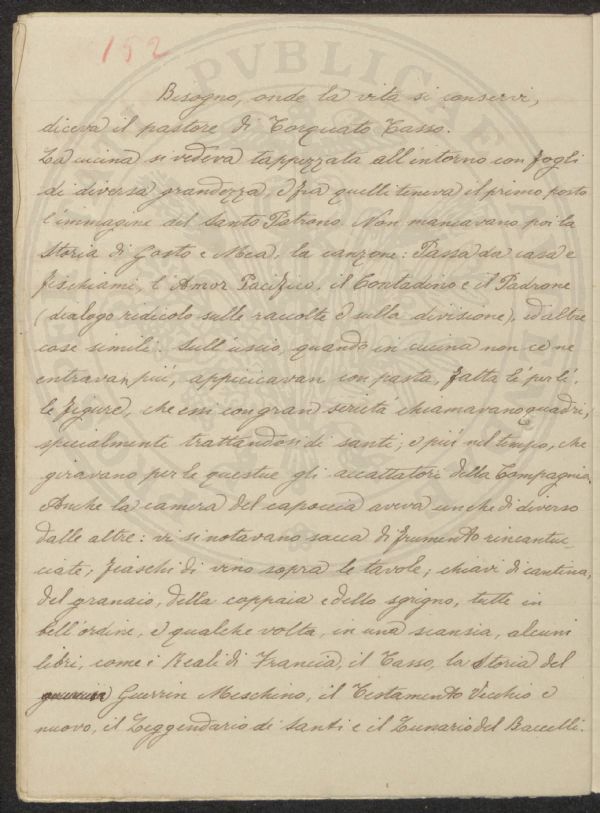 152
Bisogno, onde la vita si conservi,
diceva il pastore di Torquato Tasso.
La cucina si vedeva tappezzata all'intorno con fogli
di diversa grandezza, e fra quelli teneva il primo posto
l'immagine del Santo Patrono. Non mancavano poi la
Storia di Gosto e Mea, la canzone: Passa da casa e
fischiami, l'Amor Pacifico, il Contadino e il Padrone
(dialogo ridicolo sulle raccolte e sulla divisione), ed altre
cose simili. Sull'uscio, quando in cucina non ce ne
entravan più, appiccicavan con pasta, fatta lì per lì,
le figure, che essi con gran serietà chiamavano quadri,
specialmente trattandosi di santi; e più nel tempo, che
giravano per le questue gli accattatori della Compagnia.
Anche la camera del capoccia aveva un che di diverso
dalle altre: vi si notavano sacca di frumento rincantuc-
ciate; fiaschi di vino sopra le tavole; chiavi di cantina,
del granaio, della coppaia e dello sgrigno, tutte in
bell'ordine, e qualche volta, in una scansia, alcuni
libri, come i Reali di Francia, il Tasso, la Storia del
Guerrin Meschino, il Testamento Vecchio e
nuovo, il Leggendario di Santi e il Lunario del Baccelli.
PVBLICAE